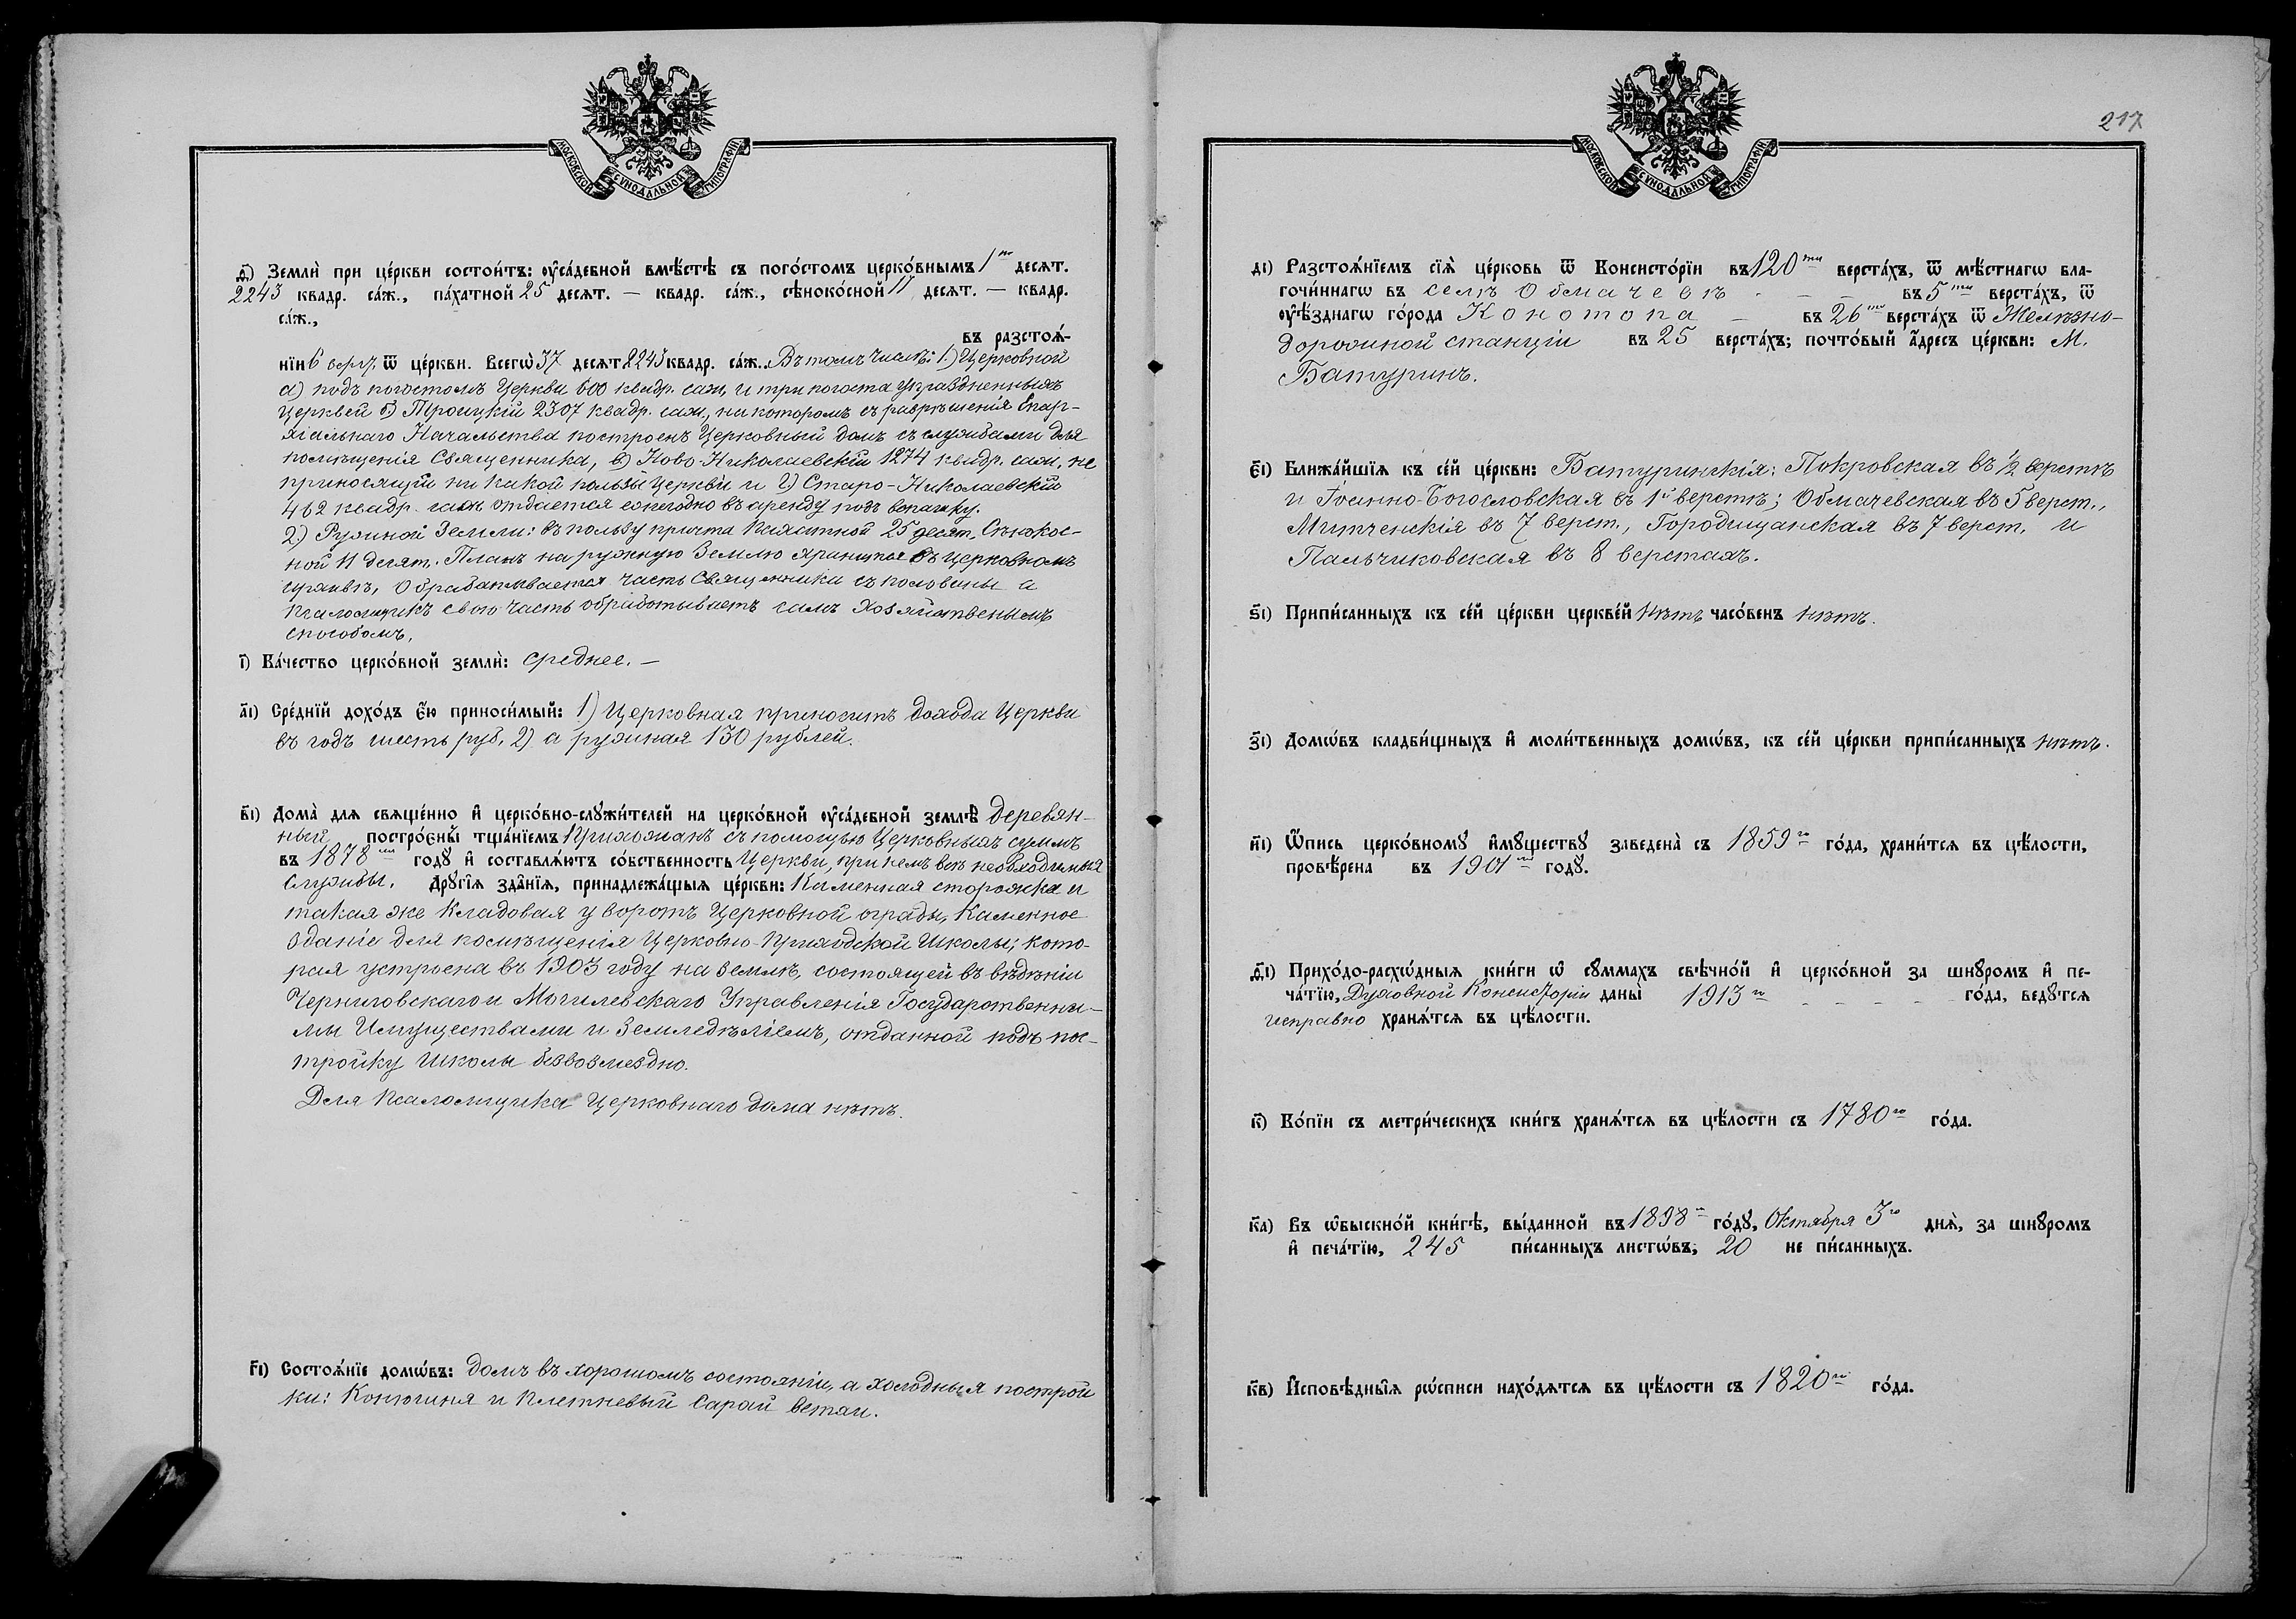 МОСКОВСКОЙ СѴНОДАЛЬНОЙ ТИПОГРАФІИ
ѳ҃) Землѝ при це́ркви состои́тъ: ᲂу҆са́дебной вмѣ́стѣ съ пого́стомъ церко́внымъ 1 десѧт.
2243 квадр. са́ж., па́хатной 25 десѧт. — квадр. са́ж., сѣноко́сной 11 десѧт. — квадр.
са́ж.,
въ разстоѧ́-
нїи 6 верст. ѿ це́ркви. Всегѡ̀ 37 десѧт 2243 квадр. са́ж. Въ томъ числѣ: 1) Церковной
а) подъ погостомъ Церкви 600 квадр. саж, и три погоста упраздненныхъ
Церквей б) Троицкій 2307 квадр. саж., на которомъ съ разрѣшенія Епар-
хіальнаго Начальства построенъ Церковный домъ съ службами для
помѣщенія Священника, в) Ново-Николаевскій 1274 квадр. саж. не
приносящій ни какой пользы Церкви и г) Старо-Николаевскій
462 квадр. саж отдается ежегодно въ аренду подъ вспашку.
2) Ружной Земли: въ пользу причта Пахатной 25 десят. Сѣнокос-
ной 11 десят. Планъ на ружную Землю хранится въ церковномъ
архивѣ, Обрабатывается часть Священника съ половины а
Псаломщикъ свою часть обработываетъ самъ хозяйственымъ
способомъ.
і҃) Ка́чество церко́вной землѝ: среднее. —
а҃і) Сре́днїй дохо́дъ є҆́ю приноси́мый: 1) Церковная приноситъ дохода Церкви
въ годъ шесть руб, 2) а ружная 130 рублей.
в҃і) Дома̀ для свѧще́нно и҆ церко́вно-слꙋжи́телей на церко́вной ᲂу҆са́дебной землѣ̀ деревян-
ный построєны̀ тща́нїемъ Прихожанъ съ помощью Церковныхъ суммъ
въ 1878 годꙋ и҆ составлѧ́ютъ со́бственность Церкви, при немъ всѣ необходимыя
службы. Дрꙋгі́ѧ зда̑нїѧ, принадлежа́щыѧ це́ркви: Каменная сторожка и
такая же Кладовая у воротъ Церковной ограды, Каменное
Зданіе для помѣщенія Церковно-Приходской Школы; кото-
рая устроена въ 1903 году на землѣ, состоящей въ вѣдѣніи
Черниговскаго и Могилевскаго Управленія Государственны-
мы Имуществами и Земледѣліемъ, отданной подъ пос-
тройку школы безвозмездно.
Для Псаломщика Церковнаго дома нѣтъ.
г҃і) Состоѧ́нїе домѡ́въ: домъ въ хорошомъ состояніи, а холодныя построй
ки: Конюшня и плетневый Сарай ветхи.
217
МОСКОВСКОЙ СѴНОДАЛЬНОЙ ТИПОГРАФІИ
д҃і) Разстоѧ́нїемъ сїѧ̀ це́рковь ѿ Консисто́рїи въ 120 верста́хъ, ѿ мѣ́стнагѡ бла-
гочи́ннагѡ въ селѣ Обмачевѣ — въ 5 верста́хъ, ѿ
ᲂу҆ѣ́зднагѡ го́рода Конотопа — въ 26 верста́хъ ѿ Желѣзно-
дорожной станціи въ 25 верста́хъ; почто́вый а҆́дресъ це́ркви: М.
Батуринъ.
є҃і) Ближа́йшїѧ къ се́й це́ркви: Батуринскія: Покровская въ ½ верстѣ
и Іоанно-Богословская въ 1й верстѣ; Обмачевская въ 5 верст.,
Митченскія въ 7 верст., Городищанская въ 7 верст. и
Пальчиковская въ 8 верстахъ.
ѕ҃і) Припи́санныхъ къ се́й це́ркви церкве́й нѣтъ часо́венъ нѣтъ.
з҃і) Домѡ́въ кладби́щныхъ и҆ моли́твенныхъ домѡ́въ, къ се́й це́ркви припи́санныхъ нѣтъ.
и҃і) Ѡ҆́пись церко́вномꙋ и҆мꙋ́ществꙋ заведена̀ съ 1859 го́да, храни́тсѧ въ цѣ́лости,
провѣ́рена въ 1901 годꙋ̀.
ѳ҃і) Прихо́до-расхѡ́дныѧ кни́ги ѡ҆ сꙋ́ммахъ свѣчно́й и҆ церко́вной за шнꙋро́мъ и҆ пе-
ча́тїю, Духовной Консисторіи даны̀ 1913 го́да, ведꙋ́тсѧ
исправно хранѧ́тсѧ въ цѣ́лости.
к҃) Ко́пїи съ метри́ческихъ кни́гъ хранѧ́тсѧ въ цѣ́лости съ 1780 го́да.
к҃а) Въ ѡ҆быскно́й кни́гѣ, вы́данной въ 1898 го́дꙋ, Октября 3 днѧ̀, за шнꙋро́мъ
и҆ печа́тїю, 245 пи́санныхъ листѡ́въ, 20 не пи́санныхъ.
к҃в) И҆сповѣ́дныѧ рѡ́списи нахо́дѧтсѧ въ цѣ́лости съ 1820 го́да.